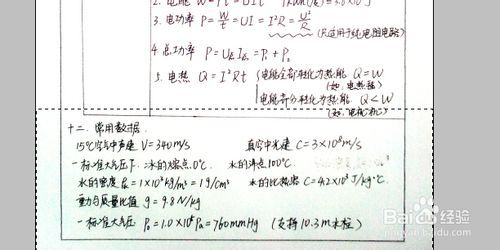 2. 电能 W=Pt=UIt 1kWh(度)=3.6×10⁶J
3. 电功率 P=W/t=UI=I²R=U²/R
(只适用于纯电阻电路)
4. 总功率 P=U总I总=P₁+P₂
5. 电热 Q=I²Rt 电能全部转化为热能 Q=W
(如:电热器)
电能部分转化为热能 Q<W
(如:电动机)
十二、常用数据.
15℃空气中声速 V=340m/s 真空中光速 C=3×10⁸m/s
一标准大气压下:冰的熔点0℃. 水的沸点100℃
水的密度 ρ水=1×10³kg/m³=1g/cm³ 水的比热容 C=4.2×10³J/kg·℃
重力与质量比值 g=9.8N/kg
一标准大气压 P₀=1.0×10⁵Pa=760mmHg (支持10.3m水柱)
Baidu经验
jingyan.baidu.com